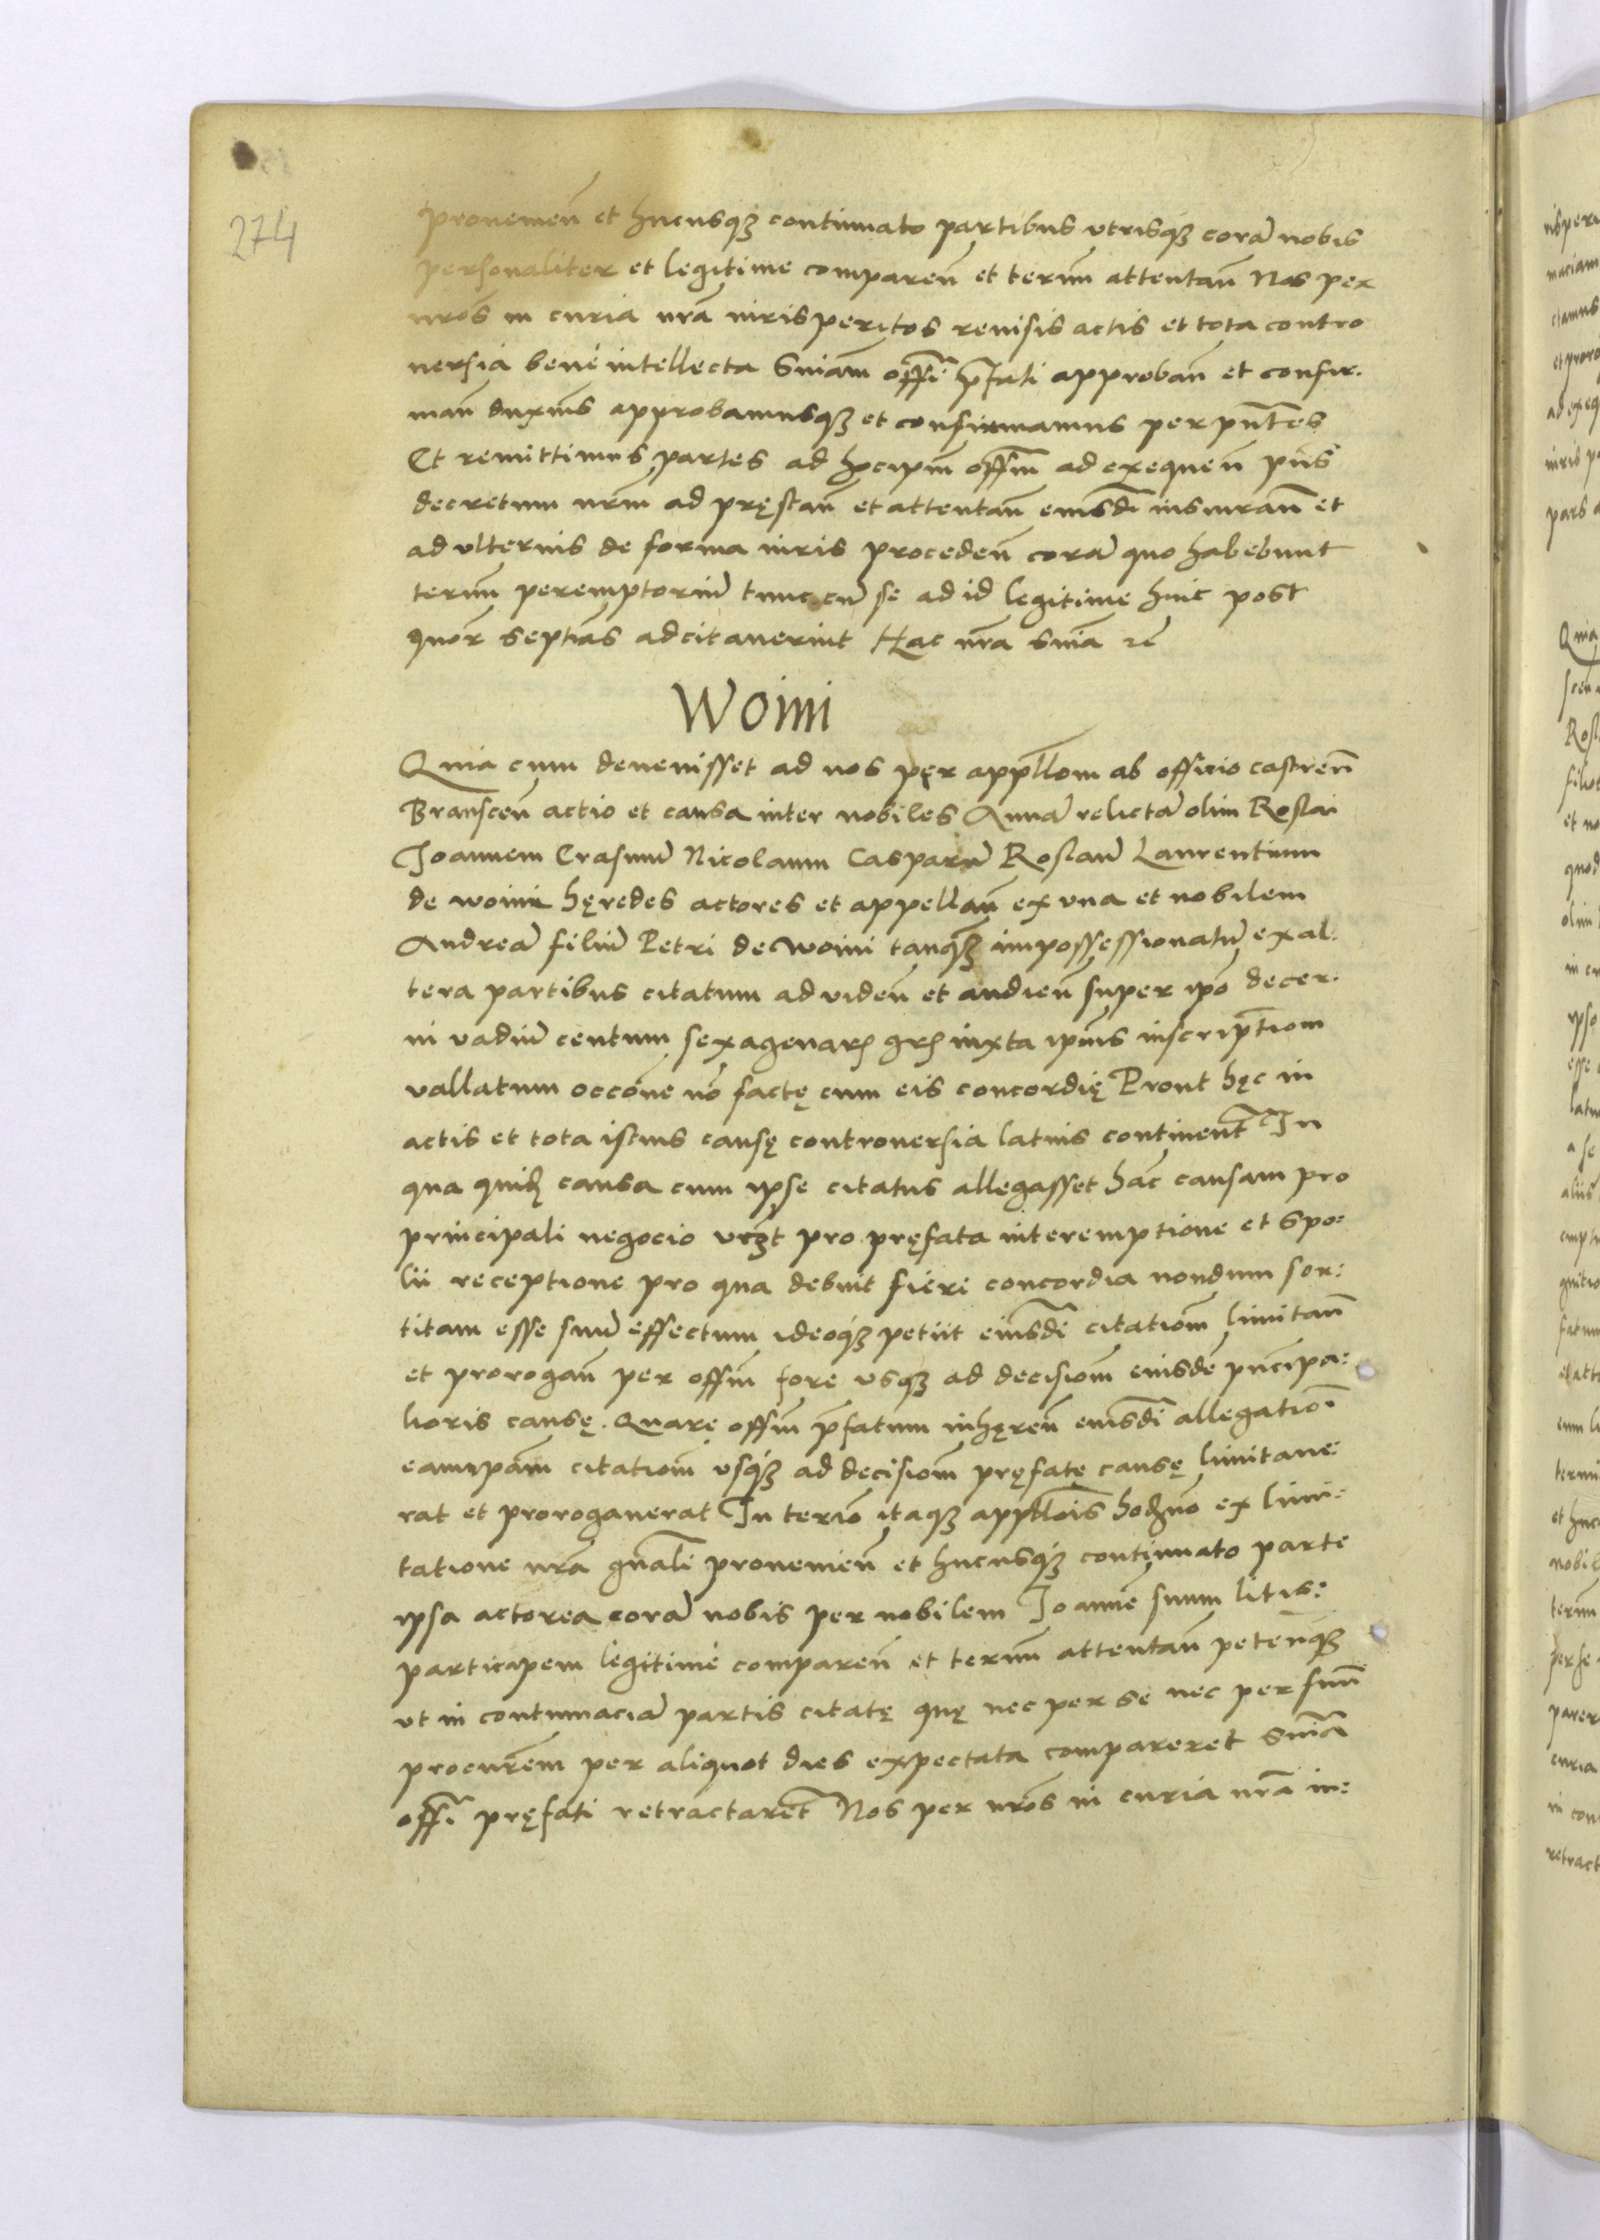 274
provenien̄ et hucusqȝ continuato partibus utrisqȝ corā nobis
personaliter et legitime comparen̄ et termī attentan̄ Nos per
nr̄os in curia nr̄a iuris peritos revisis actis et tota contro
versia bene intellecta Sniām offi p̄fati approban̄ et confir.
man̄ duximus approbamusqȝ et confirmamus per pn̄tes
Et remittimus partes ad hoc ipm̄ offm̄ ad exequen̄ pn̄s
decretum nrm̄ ad pręstan̄ et attentan̄ eiusdī iusiuran̄ et
ad ulterius de forma iuris proceden̄ corā quo habebunt
termī peremptoriū tunc cū se ad id legitime hinc post
quor septīas adcitaverint Hac nr̄a sniā rē
Woini
Quia cum devenisset ad nos per appellom̄ ab officio castren̄
Branscen̄ actio et causa inter nobiles Annā relictā olim Roslai
Joannem Erasmū Nicolaum Casparū Roslaū Laurentium
de woini hęredes actores et appellan̄ ex una et nobilem
Andreā filiū Petri de Woini tanqȝ impossessionatū ex al:
tera partibus citatum ad viden̄ et audien̄ super ipō decer.
ni vadiū centum sexagenarꝝ grꝝ iuxta ipīus inscriptiom̄
vallatum occōne nō factę cum eis concordię Prout hęc in
actis et tota istius causę controversia latius continent̄ In
qua quidȝ causa cum ipse citatus allegasset hāc causam pro
principali negocio vrȝt pro pręfata interemptione et spo:
lii receptione pro qua debuit fieri concordia nondum sor:
titam esse suū effectum ideoqȝ petiit eiusdī citatiom̄ limitan̄
et prorogan̄ per offm̄ fore usqȝ ad decisiom̄ eiusdē pn̄cipa:
lioris causę. Quare offm̄ p̄fatum inhęren̄ eiusdī allegatiōi
eam ipām citatiom̄ usqȝ ad decisiom̄ pręfatę causę limitave:
rat et prorogaverat In termīo itaqȝ appellōis hodierno ex limi:
tatione nr̄a gn̄ali provenien̄ et hucusqȝ continuato parte
ipsa actorea corā nobis per nobilem Joannē suum litis:
participem legitime comparen̄ et termī attentan̄ petenqȝ
ut in contumaciā partis citatę quę nec per se nec per suū
procurēm per aliquot dies expectata compareret Sniā
offi pręfati retractaret̄ Nos per nr̄os in curia nr̄a iu: